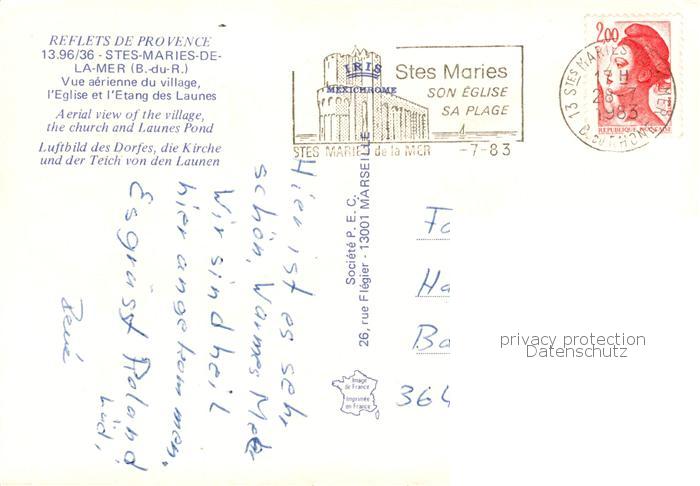 REFLETS DE PROVENCE
13.96/36 - STES-MARIES-DE-
LA-MER (B.-du-R.)
Vue aérienne du village,
l'Eglise et l'Etang des Launes
Aerial view of the village,
the church and Launes Pond
Luftbild des Dorfes, die Kirche
und der Teich von den Launen
IRIS
MEXICHROME
Stes Maries
SON ÉGLISE
SA PLAGE
STES MARIES de la MER -7-83
2,00
13 STES MARIES
17H
28-7
1983
B. DU RHONE
REPUBLIQUE FRANÇAISE
Hier ist es sehr
schön, Warmes
Wir sind heil
hier angekommen.
Es grüsst Roland
und
René
Société P.E.C.
26, rue Flégier - 13001 MARSEILLE
Image
de France
Imprimée
en France
Fa
Ha
Ba
364
privacy protection
Datenschutz